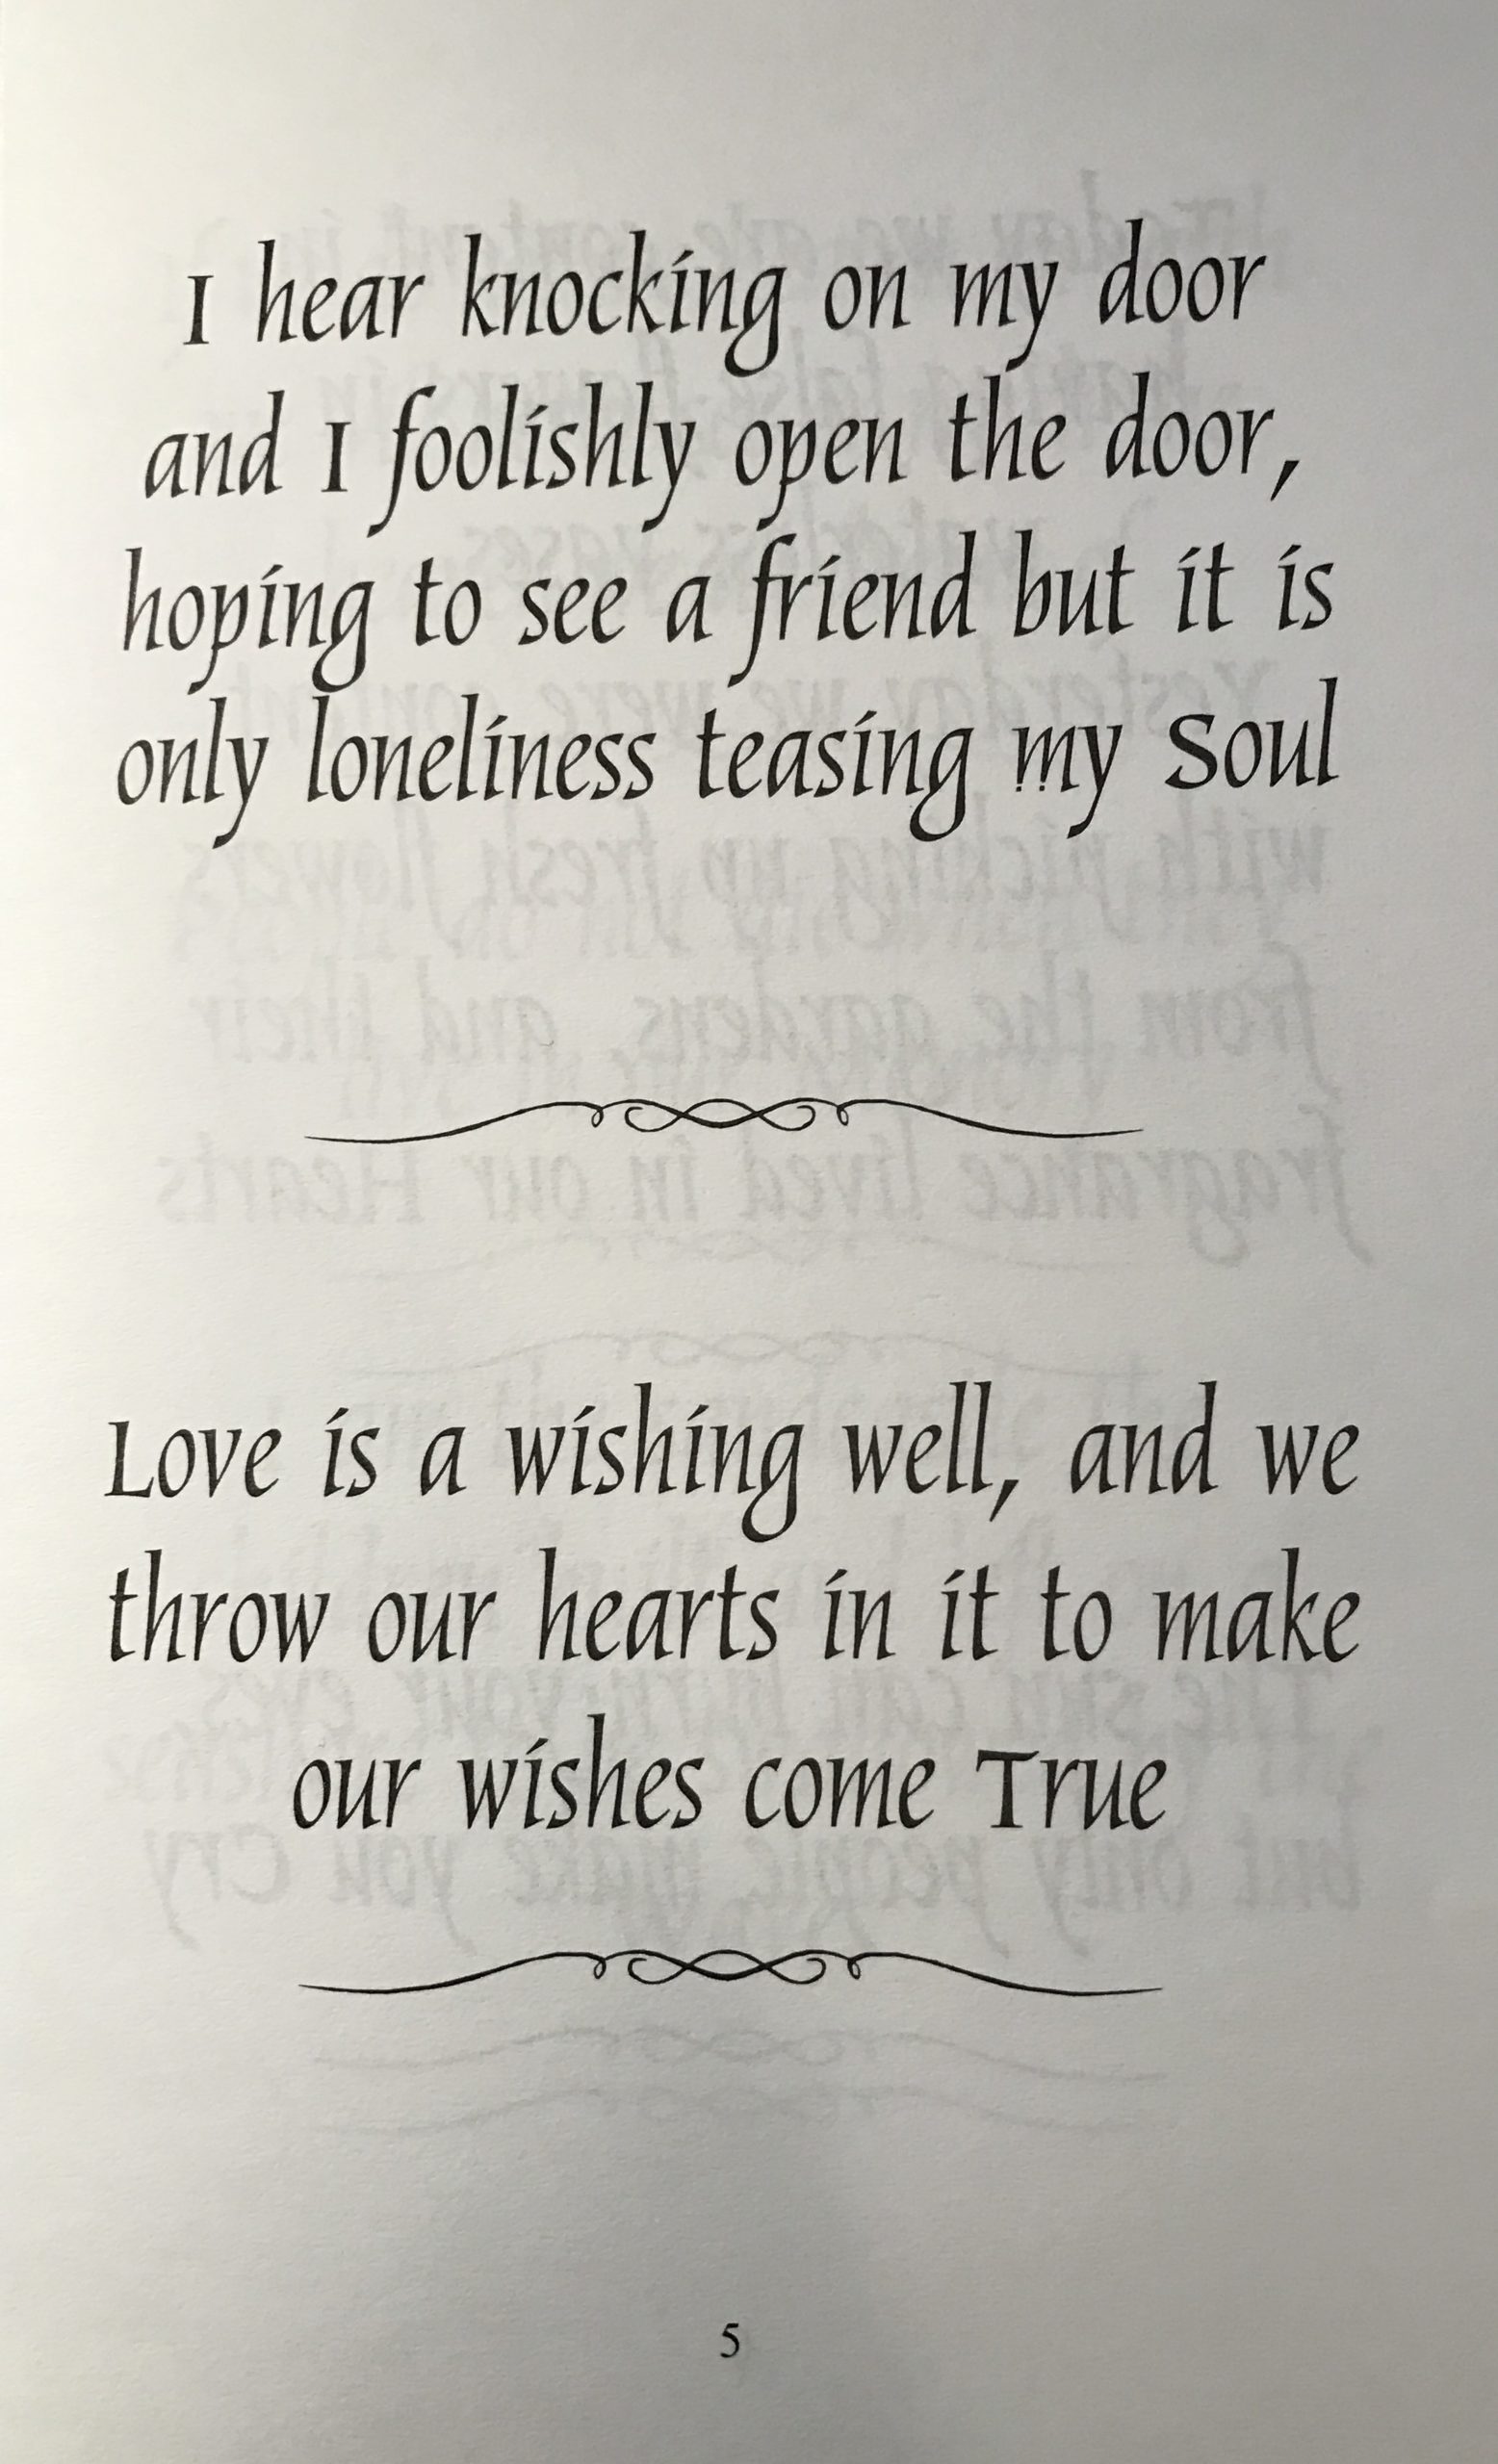 I hear knocking on my door
and I foolishly open the door,
hoping to see a friend but it is
only loneliness teasing my Soul
Love is a wishing well, and we
throw our hearts in it to make
our wishes come True
5